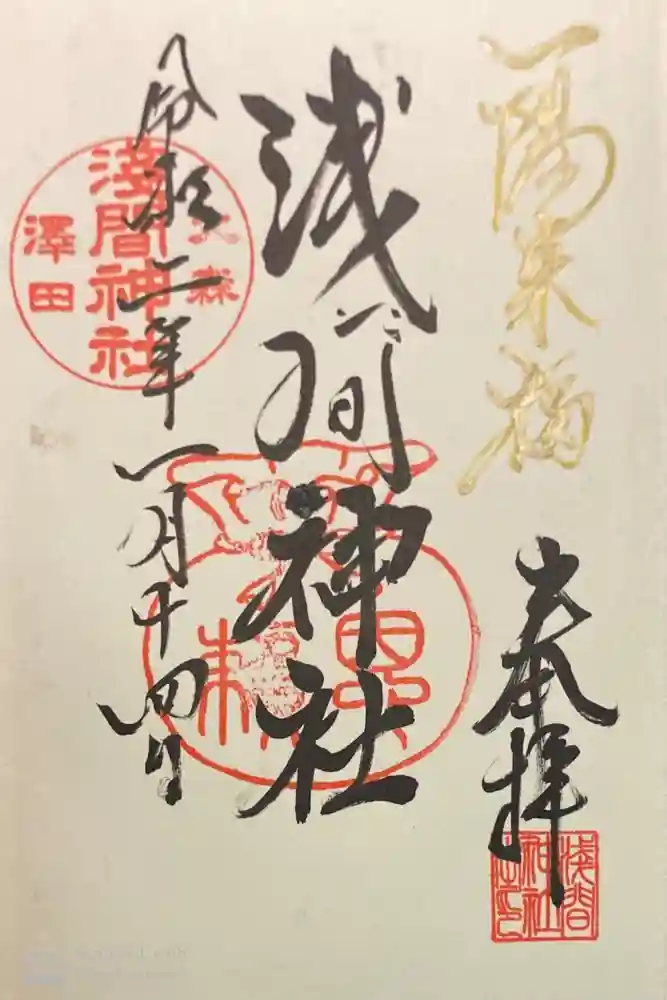 一陽来福
奉拝
浅間神社
令和二年
一月十四日
大森
淺間神社
澤田
淺間
神社